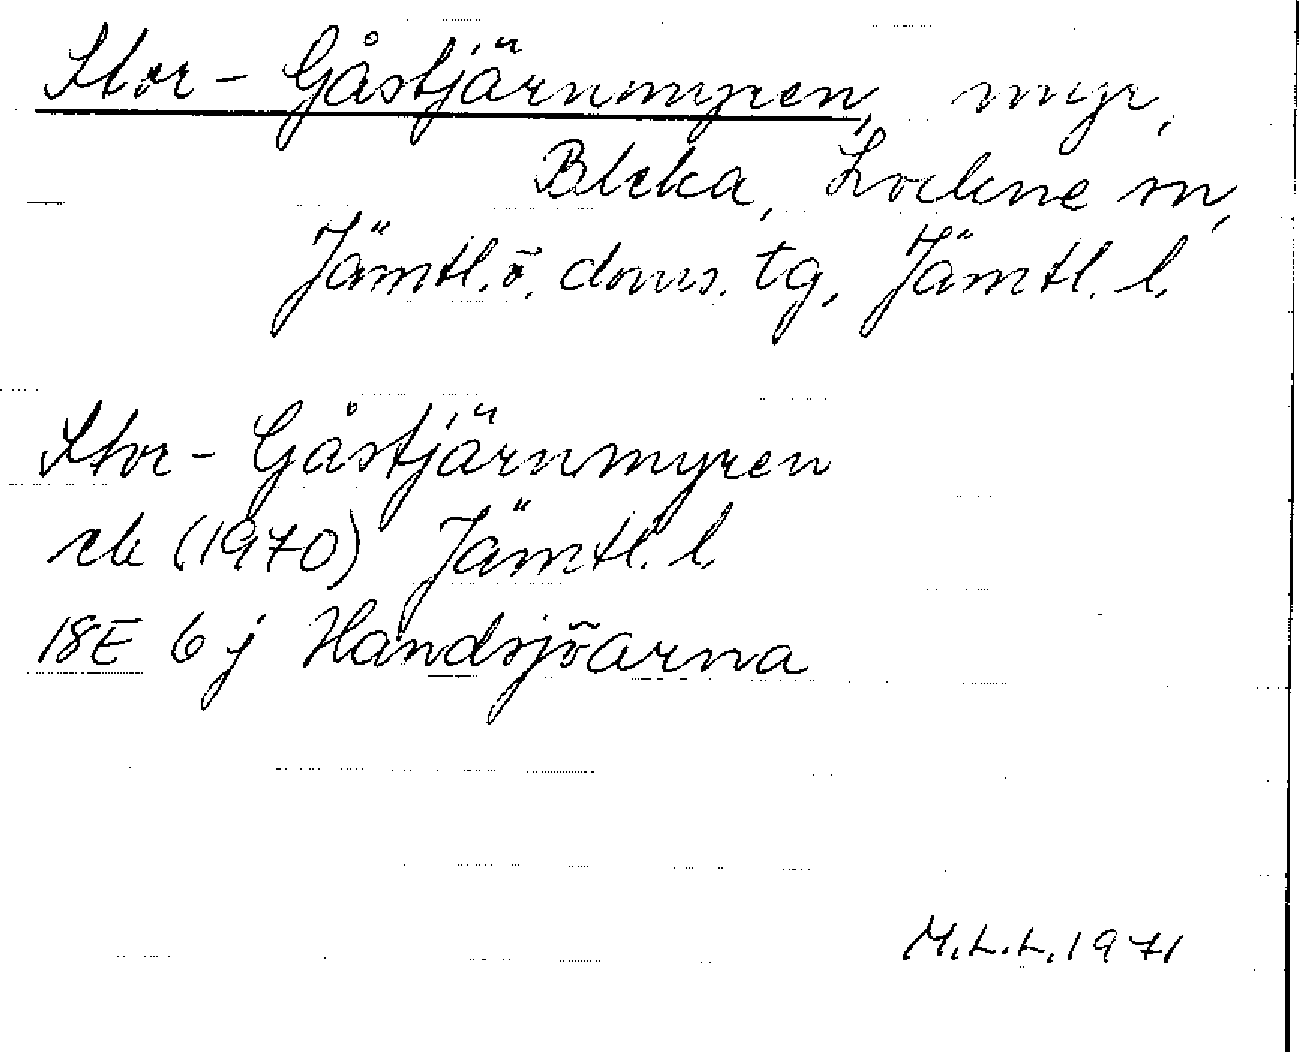 Stor-Gåstjärnmyren, myr,
Bleka, Lockne sn,
Jämtl. ö. doms. tg, Jämtl. l.
Stor-Gåstjärnmyren
ek (1970) Jämtl. l.
18E 6j Handsjöarna
M.L.L. 1971